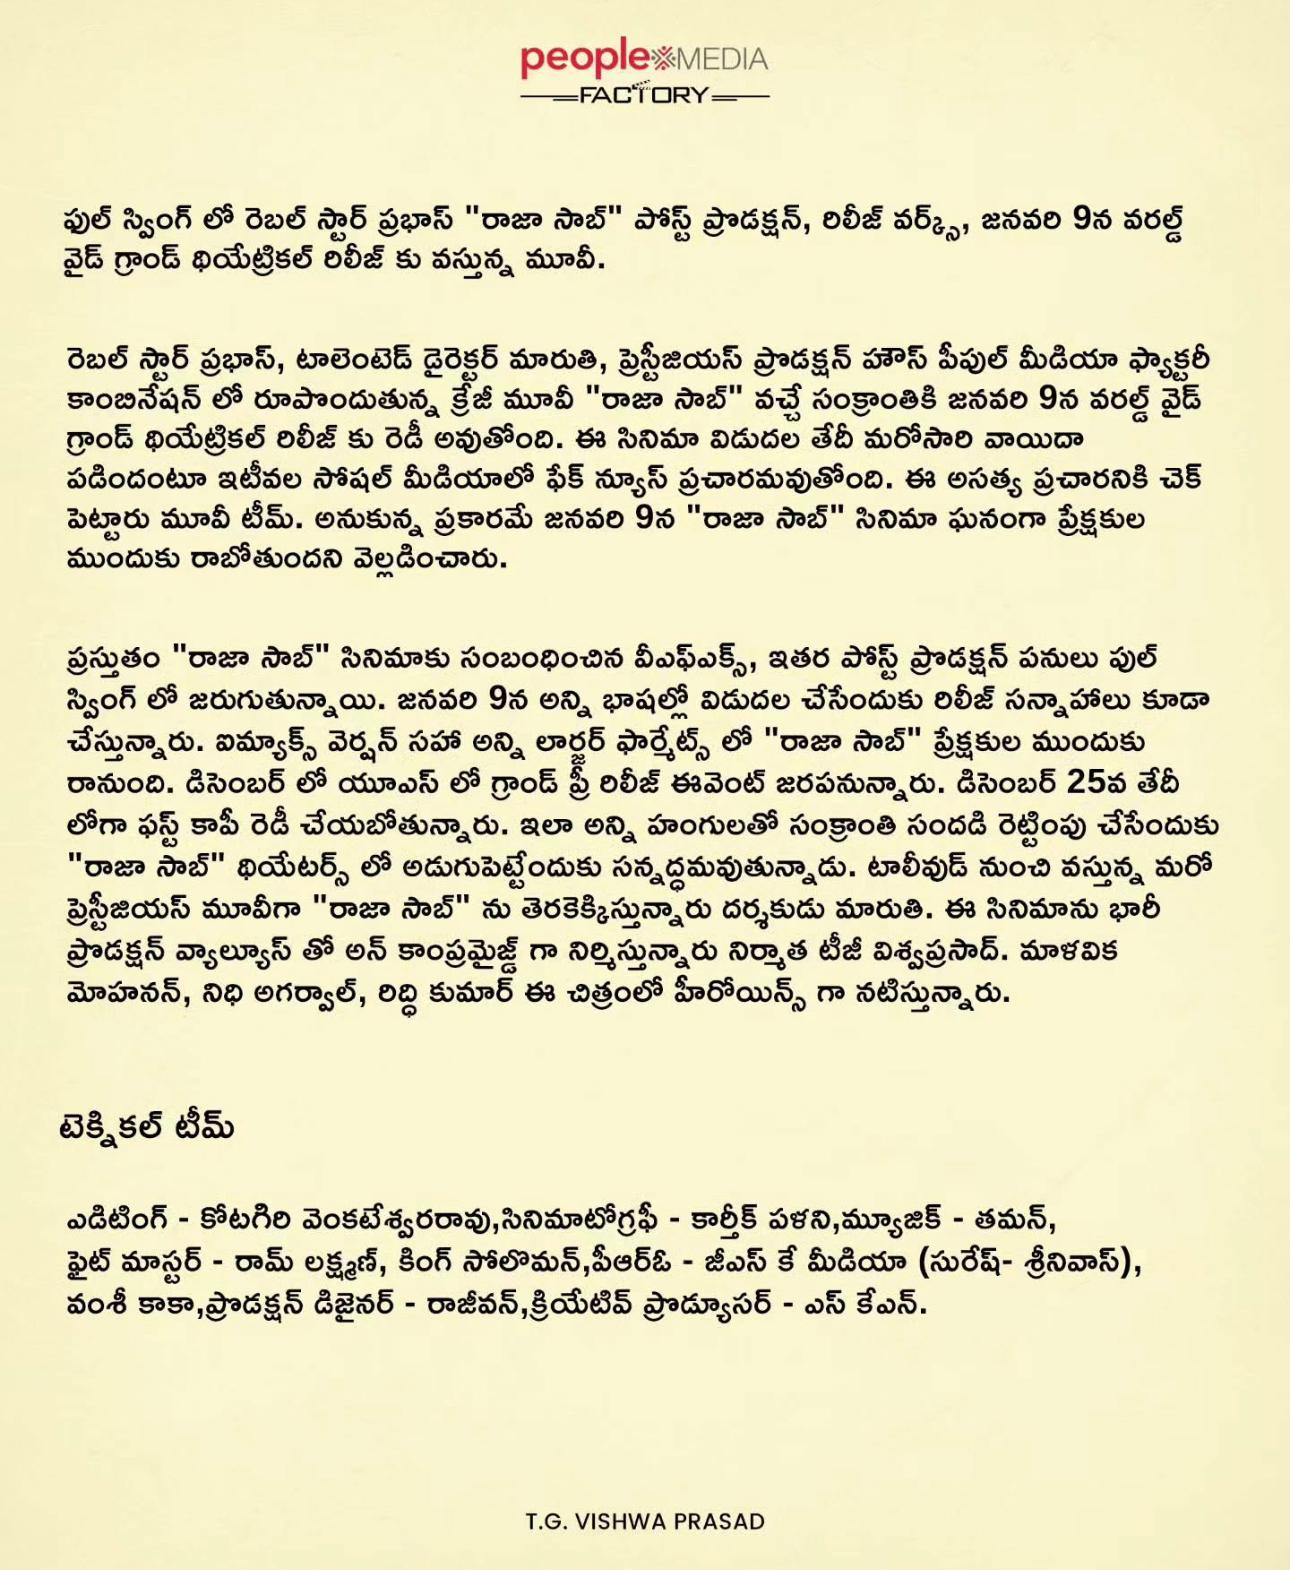 people MEDIA
FACTORY
ఫుల్ స్వింగ్ లో రెబల్ స్టార్ ప్రభాస్ "రాజా సాబ్" పోస్ట్ ప్రొడక్షన్, రిలీజ్ వర్క్స్, జనవరి 9న వరల్డ్
వైడ్ గ్రాండ్ థియేట్రికల్ రిలీజ్ కు వస్తున్న మూవీ.
రెబల్ స్టార్ ప్రభాస్, టాలెంటెడ్ డైరెక్టర్ మారుతి, ప్రెస్టీజియస్ ప్రొడక్షన్ హౌస్ పీపుల్ మీడియా ఫ్యాక్టరీ
కాంబినేషన్ లో రూపొందుతున్న క్రేజీ మూవీ "రాజా సాబ్" వచ్చే సంక్రాంతికి జనవరి 9న వరల్డ్ వైడ్
గ్రాండ్ థియేట్రికల్ రిలీజ్ కు రెడీ అవుతోంది. ఈ సినిమా విడుదల తేదీ మరోసారి వాయిదా
పడిందంటూ ఇటీవల సోషల్ మీడియాలో ఫేక్ న్యూస్ ప్రచారమవుతోంది. ఈ అసత్య ప్రచారనికి చెక్
పెట్టారు మూవీ టీమ్. అనుకున్న ప్రకారమే జనవరి 9న "రాజా సాబ్" సినిమా ఘనంగా ప్రేక్షకుల
ముందుకు రాబోతుందని వెల్లడించారు.
ప్రస్తుతం "రాజా సాబ్" సినిమాకు సంబంధించిన వీఎఫ్ఎక్స్, ఇతర పోస్ట్ ప్రొడక్షన్ పనులు ఫుల్
స్వింగ్ లో జరుగుతున్నాయి. జనవరి 9న అన్ని భాషల్లో విడుదల చేసేందుకు రిలీజ్ సన్నాహాలు కూడా
చేస్తున్నారు. ఐమ్యాక్స్ వెర్షన్ సహా అన్ని లార్జర్ ఫార్మేట్స్ లో "రాజా సాబ్" ప్రేక్షకుల ముందుకు
రానుంది. డిసెంబర్ లో యూఎస్ లో గ్రాండ్ ప్రీ రిలీజ్ ఈవెంట్ జరపనున్నారు. డిసెంబర్ 25వ తేదీ
లోగా ఫస్ట్ కాపీ రెడీ చేయబోతున్నారు. ఇలా అన్ని హంగులతో సంక్రాంతి సందడి రెట్టింపు చేసేందుకు
"రాజా సాబ్" థియేటర్స్ లో అడుగుపెట్టేందుకు సన్నద్ధమవుతున్నాడు. టాలీవుడ్ నుంచి వస్తున్న మరో
ప్రెస్టీజియస్ మూవీగా "రాజా సాబ్" ను తెరకెక్కిస్తున్నారు దర్శకుడు మారుతి. ఈ సినిమాను భారీ
ప్రొడక్షన్ వ్యాల్యూస్ తో అన్ కాంప్రమైజ్డ్ గా నిర్మిస్తున్నారు నిర్మాత టీజీ విశ్వప్రసాద్. మాళవిక
మోహనన్, నిధి అగర్వాల్, రిద్ధి కుమార్ ఈ చిత్రంలో హీరోయిన్స్ గా నటిస్తున్నారు.
టెక్నికల్ టీమ్
ఎడిటింగ్ - కోటగిరి వెంకటేశ్వరరావు,సినిమాటోగ్రఫీ - కార్తీక్ పళని,మ్యూజిక్ - తమన్,
ఫైట్ మాస్టర్ - రామ్ లక్ష్మణ్, కింగ్ సోలొమన్,పీఆర్ఓ - జీఎస్ కే మీడియా (సురేష్- శ్రీనివాస్),
వంశీ కాకా,ప్రొడక్షన్ డిజైనర్ - రాజీవన్,క్రియేటివ్ ప్రొడ్యూసర్ - ఎస్ కేఎన్.
T.G. VISHWA PRASAD